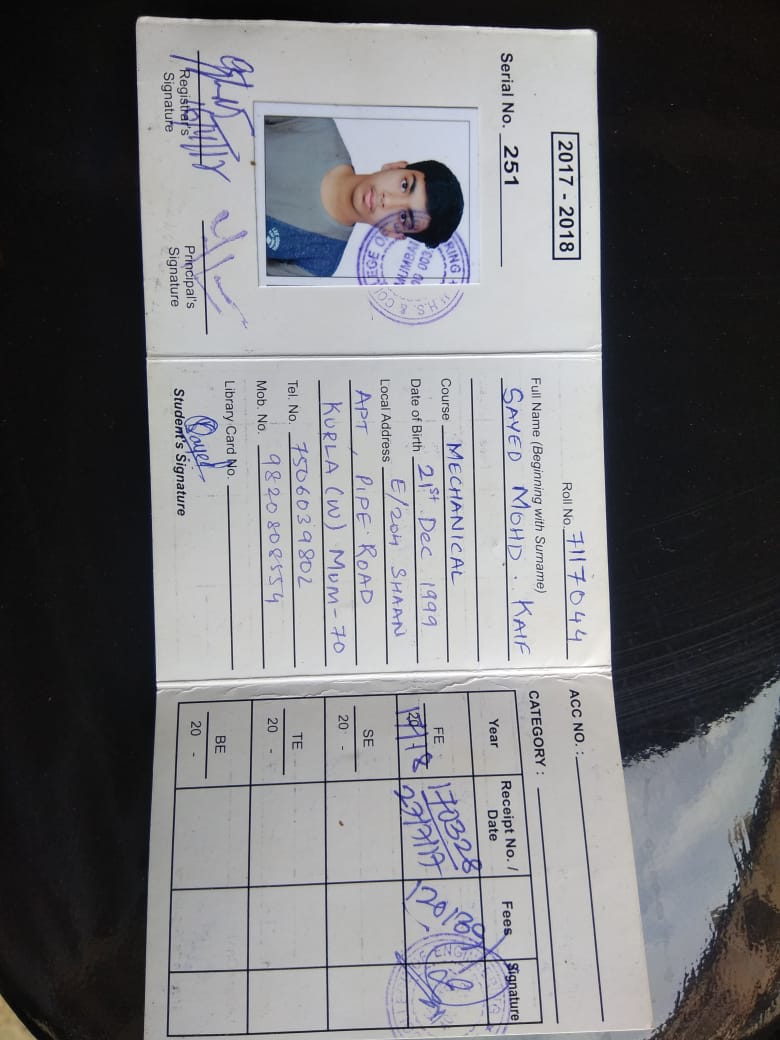 2017 - 2018
Serial No. 251
RING
H.H.S. & COLLEGE O
MUMBAI
Registrar's Signature
Principal's Signature
Roll No. 7117044
Full Name (Beginning with Surname)
SAYED MOHD. KAIF
Course MECHANICAL
Date of Birth 21st Dec 1999
Local Address E/204 SHAAN
APT, PIPE ROAD
KURLA (W) MUM-70
Tel. No. 7506039802
Mob. No. 9820808554
Library Card No.
Sayed
Student's Signature
ACC NO. :
CATEGORY :
Year Receipt No. / Date Fees Signature
FE 17/18 170328 27/7/17
SE 20 -
TE 20 -
BE 20 -